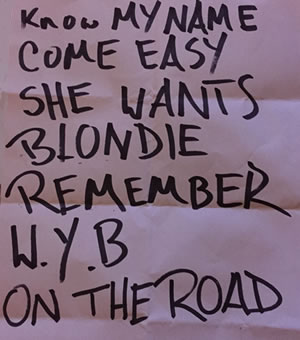 Know MY NAME
COME EASY
SHE WANTS
BLONDIE
REMEMBER
W.Y.B
ON THE ROAD